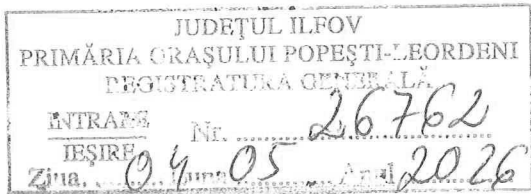 JUDEȚUL ILFOV
PRIMĂRIA ORAȘULUI POPEȘTI-LEORDENI
REGISTRATURA GENERALĂ
INTRARE
IEȘIRE
Nr. 26762
Ziua 04 Luna 05 Anul 2026